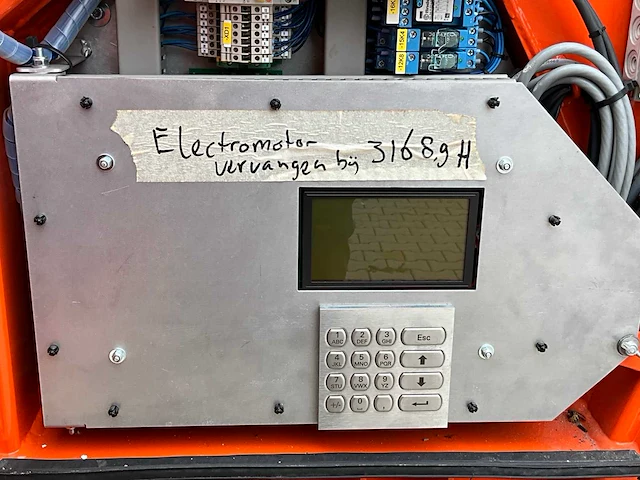 -X01
-15K4
-12K8
Electromotor
vervangen bij 3168,9 H
1 2 3 Esc
ABC DEF GHI
4 5 6
JKL MNO PQR
7 8 9
STU VWX YZ
+/- 0 .